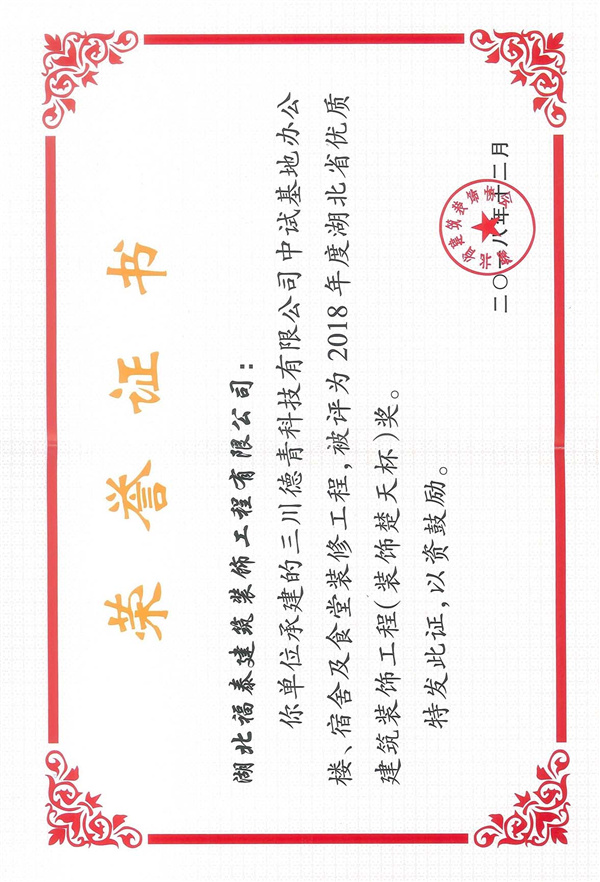 荣誉证书
湖北福泰建筑装饰工程有限公司：
你单位承建的三川德青科技有限公司中试基地办公
楼、宿舍及食堂装修工程，被评为2018年度湖北省优质
建筑装饰工程（装饰楚天杯）奖。
特发此证，以资鼓励。
二〇一八年十二月